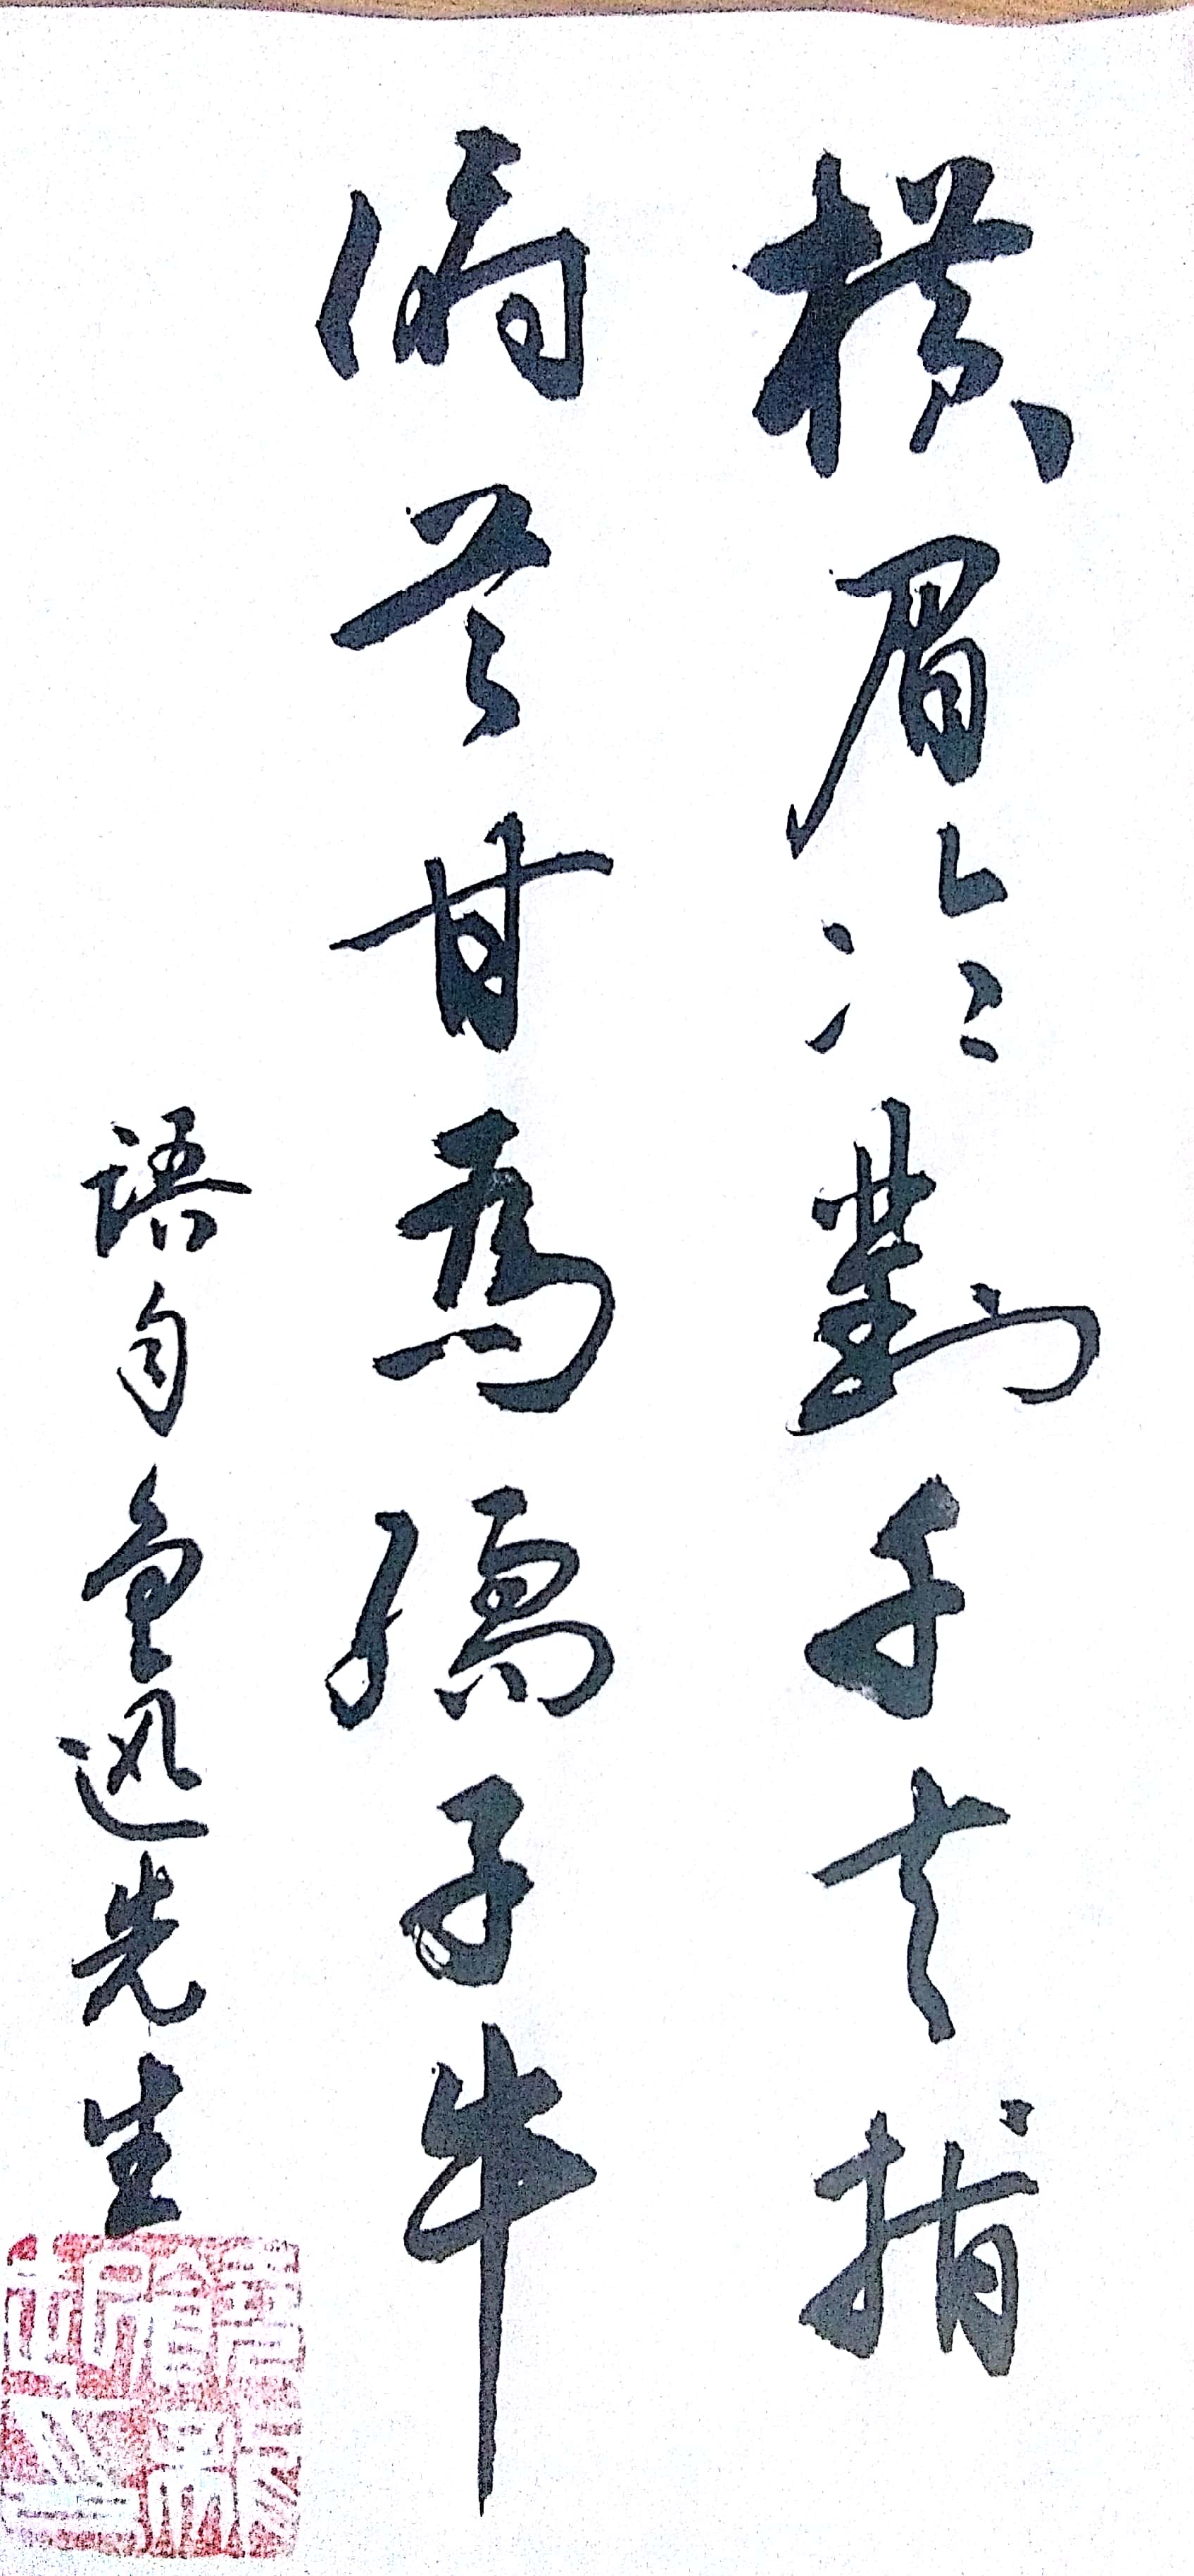 橫眉冷對千夫指
俯首甘為孺子牛
語自魯迅先生